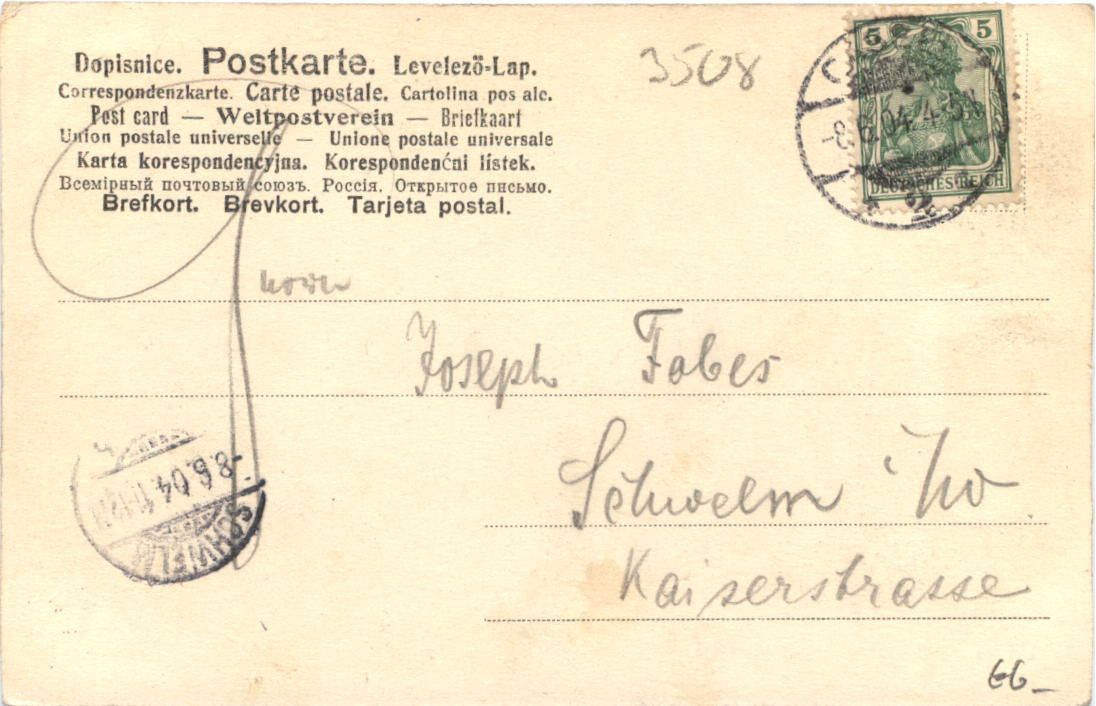 Dopisnice. Postkarte. Levelező-Lap.
Correspondenzkarte. Carte postale. Cartolina pos ale.
Post card — Weltpostverein — Briefkaart
Union postale universelle — Unione postale universale
Karta korespondencyjna. Korespondenćni lístek.
Всемірный почтовый союзъ. Россія. Открытое письмо.
Brefkort. Brevkort. Tarjeta postal.
3508
5 5
DEUTSCHES REICH
-8.6.04.4-5N
2
Joseph Fobes
Schwelm
Kaiserstrasse
-8.6.04.11-12
SCHWELM
66_